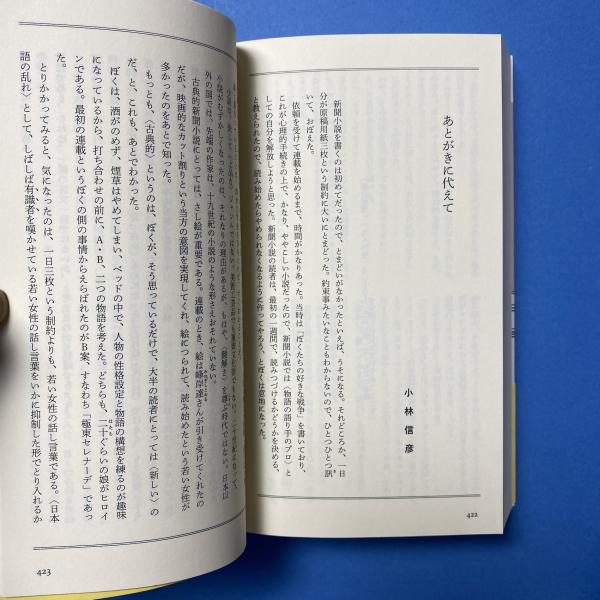 あとがきに代えて
小林信彦
新聞小説を書くのは初めてだったので、とまどいがなかったといえば、うそになる。それどころか、一日
分が原稿用紙三枚という制約に大いにまどった。約束事みたいなこともわからないので、ひとつひとつ訊
いて、おぼえた。
依頼を受けて連載を始めるまで、時間がかなりあった。当時は「ぼくたちの好きな戦争」を書いており、
これが心理的手続きの上で、かなり、ややこしい小説だったので、新聞小説では〈物語の語り手のプロ〉と
しての自分を解放しようと思った。新聞小説の読者は、最初の一週間で、読みつづけるかどうかを決める、
と教えられたので、読み始めたらやめられなくなるように作ってやろう、とぼくは意地になった。
422
小説がむずかしくなったのは、それなりの理由があるが、もはや、〈難解さ〉を尊ぶ時代ではない。日本以
外の国では、先端の作家は、十九世紀の小説のような形さえおそれていない。
古典的新聞小説としては、さし絵が重要である。連載のとき、絵は峰岸達さんが引き受けてくれたの
だが、映画的なカット割りという当方の意図を実現してくれ、絵につられて、読み始めたという若い女性が
多かったのをあとで知った。
もっとも、〈古典的〉というのは、ぼくが、そう思っているだけで、大半の読者にとっては〈新しい〉の
だ、と、これも、あとでわかった。
ぼくは、酒がのめず、煙草はやめてしまい、ベッドの中で、人物の性格設定と物語の構想を練るのが趣味
になっているから、打ち合わせの前に、A・B、二つの物語を考えた。どちらも、二十ぐらいの娘がヒロイ
ンである。最初の連載というぼくの側の事情からえらばれたのがB案、すなわち「極東セレナーデ」であっ
た。
とりかかってみると、気になったのは、一日三枚という制約よりも、若い女性の話し言葉である。〈日本
語の乱れ〉として、しばしば有識者を嘆かせている若い女性の話し言葉をいかに抑制した形でとり入れるか
423